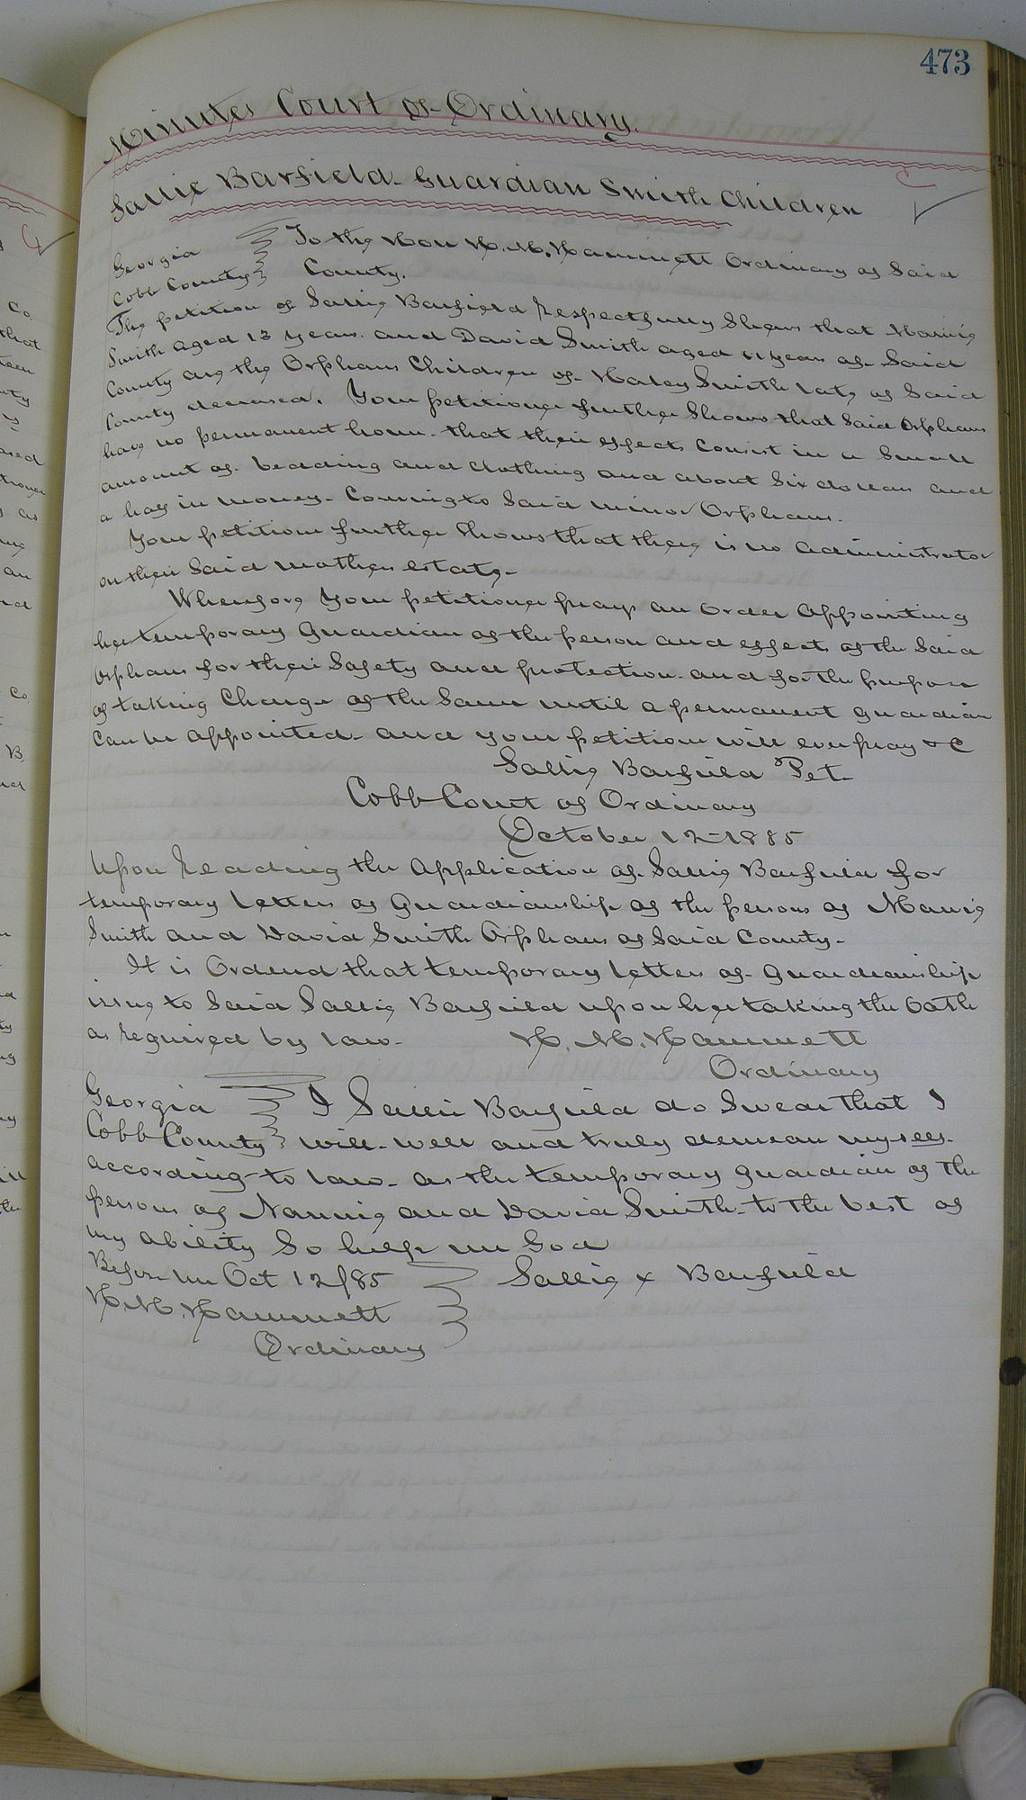 473
Minutes Court of Ordinary.
Sallie Barfield Guardian Smith Children
Georgia
Cobb County
To the Hon H. M. Hammett Ordinary of Said
County.
The petition of Sallie Barfield respectfully Shews that Nannie
Smith aged 13 years and David Smith aged 11 years of Said
County are the Orphans Children of Haley Smith late of Said
County deceased. Your petitioner further Shows that Said Orphans
have no permanent home. that their effects Consist in a Small
amount of bedding and Clothing and about Six dollars and
a half in money - Coming to Said minor Orphans.
Your petitioner further Shows that there is no administrator
on their Said mothers estate -
Wherefore Your petitioner prays an Order Appointing
her temporary Guardian of the person and effects of the Said
Orphans for their Safety and protection and for the purpose
of taking Charge of the Same until a permanent guardian
Can be appointed. and your petitioner will ever pray &C
Sallie Barfield Pet.
Cobb Court of Ordinary
October 12 - 1885
Upon reading the Application of Sallie Barfield for
temporary Letters of Guardianship of the persons of Nannie
Smith and David Smith Orphans of Said County -
It is Ordered that temporary letters of guardianship
issue to Said Sallie Barfield upon her taking the Oath
as required by law. H. M. Hammett
Ordinary
Georgia
Cobb County
I Sallie Barfield do Swear that I
will well and truly demean myself
according to law as the temporary guardian of the
persons of Nannie and David Smith to the best of
my ability So help me God
Before me Oct 12/85
Sallie x Barfield
H. M. Hammett
Ordinary